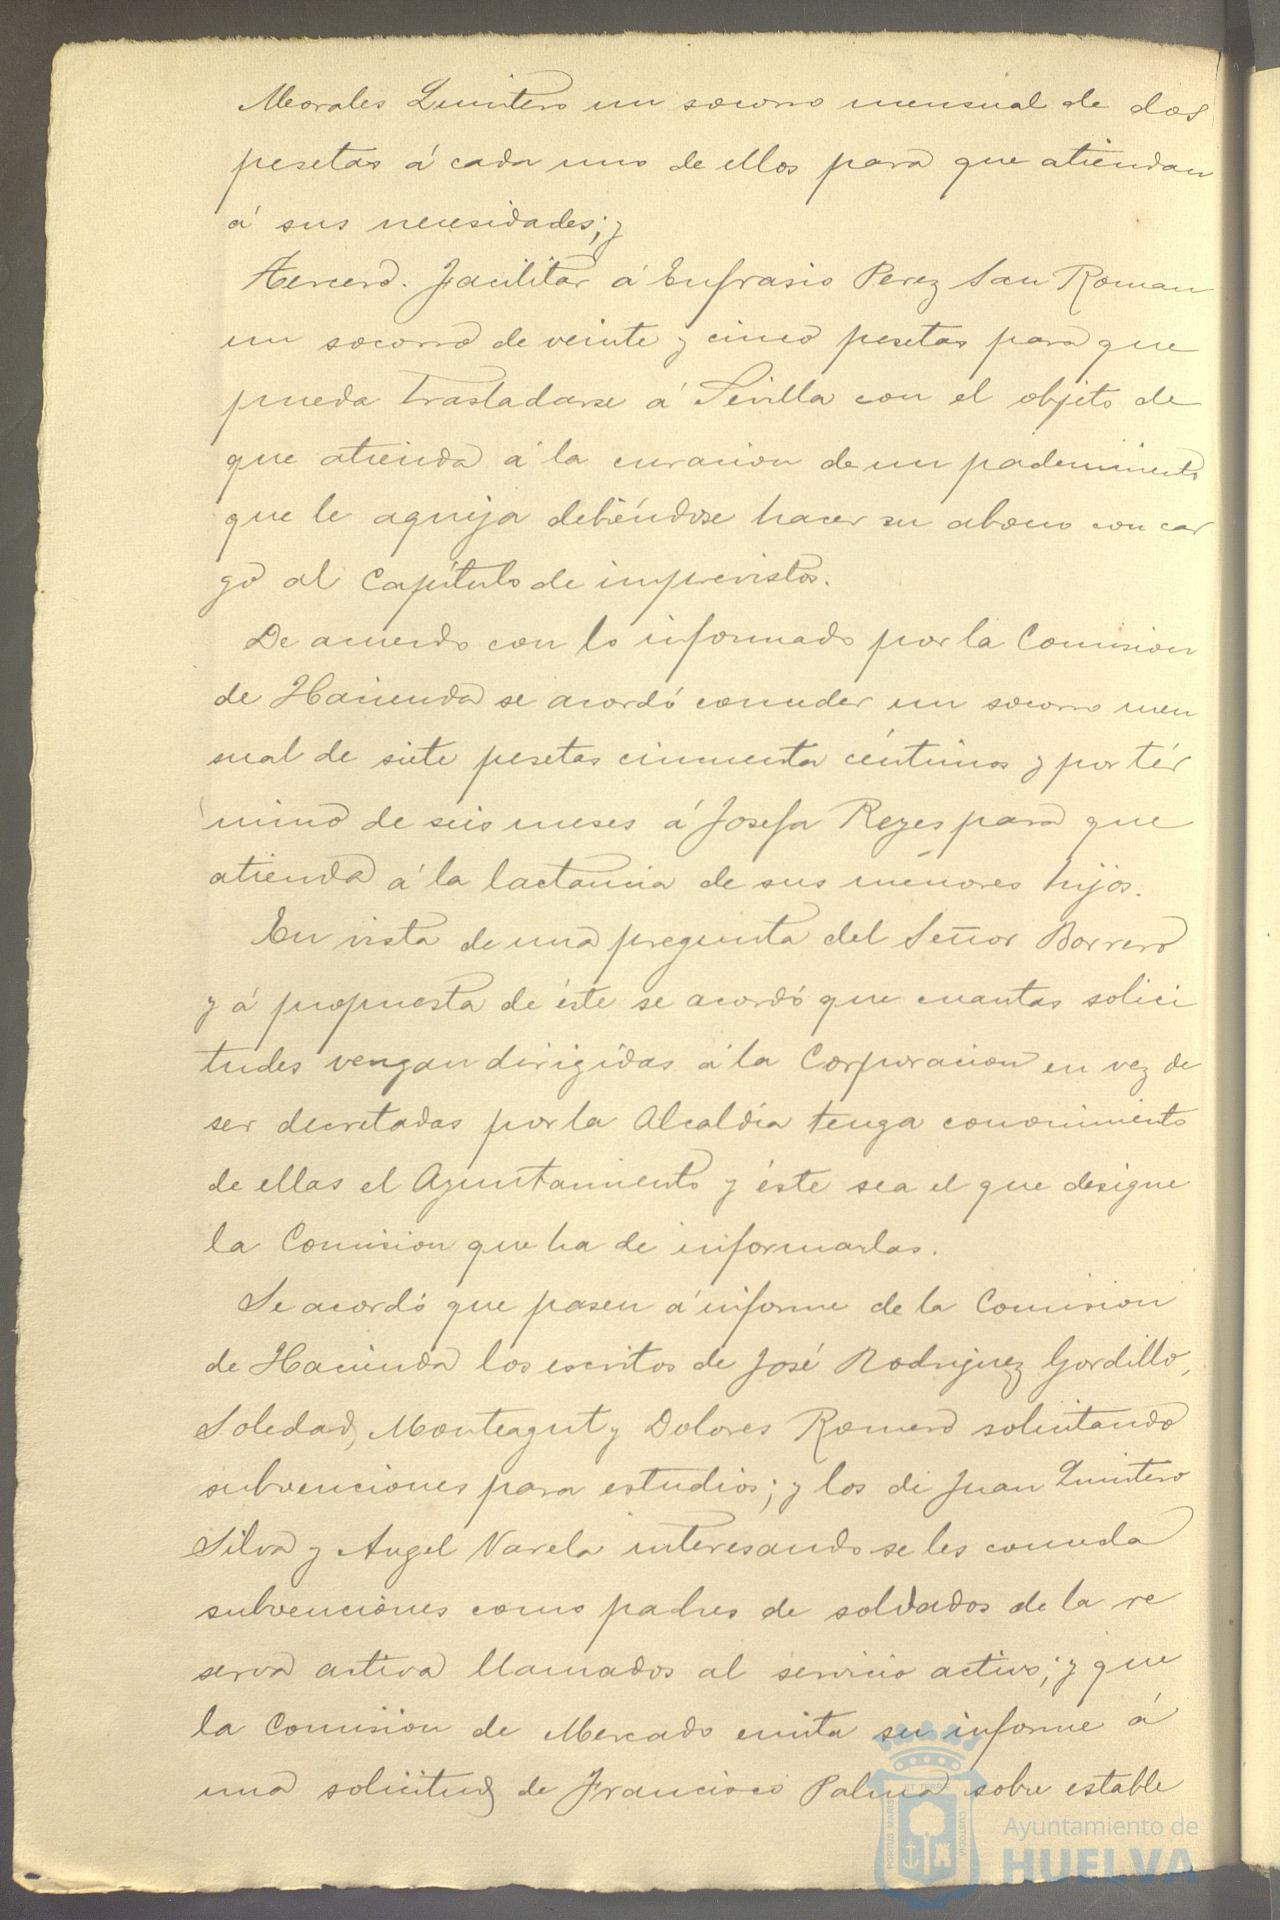 Morales Quintero un socorro mensual de dos
pesetas á cada uno de ellos para que atiendan
á sus necesidades; y
Tercero. Facilitar á Eufrasio Perez San Roman
un socorro de veinte y cinco pesetas para que
pueda trasladarse á Sevilla con el objeto de
que atienda á la curacion de un padecimiento
que le aqueja debiéndose hacer su abono con car
go al Capítulo de imprevistos.
De acuerdo con lo informado por la Comision
de Hacienda se acordó conceder un socorro men
sual de siete pesetas cincuenta céntimos y por tér
mino de seis meses á Josefa Reyes para que
atienda á la lactancia de sus menores hijos.
En vista de una pregunta del Señor Borrero
y á propuesta de éste se acordó que cuantas solici
tudes vengan dirigidas á la Corporacion en vez de
ser decretadas por la Alcaldía tenga conocimiento
de ellas el Ayuntamiento y éste sea el que designe
la Comision que ha de informarlas.
Se acordó que pasen á informe de la Comision
de Hacienda los escritos de José Rodriguez Gordillo,
Soledad Monteagut y Dolores Romero solicitando
subvenciones para estudios; y los de Juan Quintero
Silva y Angel Varela interesando se les conceda
subvenciones como padres de soldados de la re
serva activa llamados al servicio activo; y que
la Comision de Mercado emita su informe á
una solicitud de Francisco Palma sobre estable
PORTUS MARIS ET TERRAE CUSTODIA
Ayuntamiento de
HUELVA